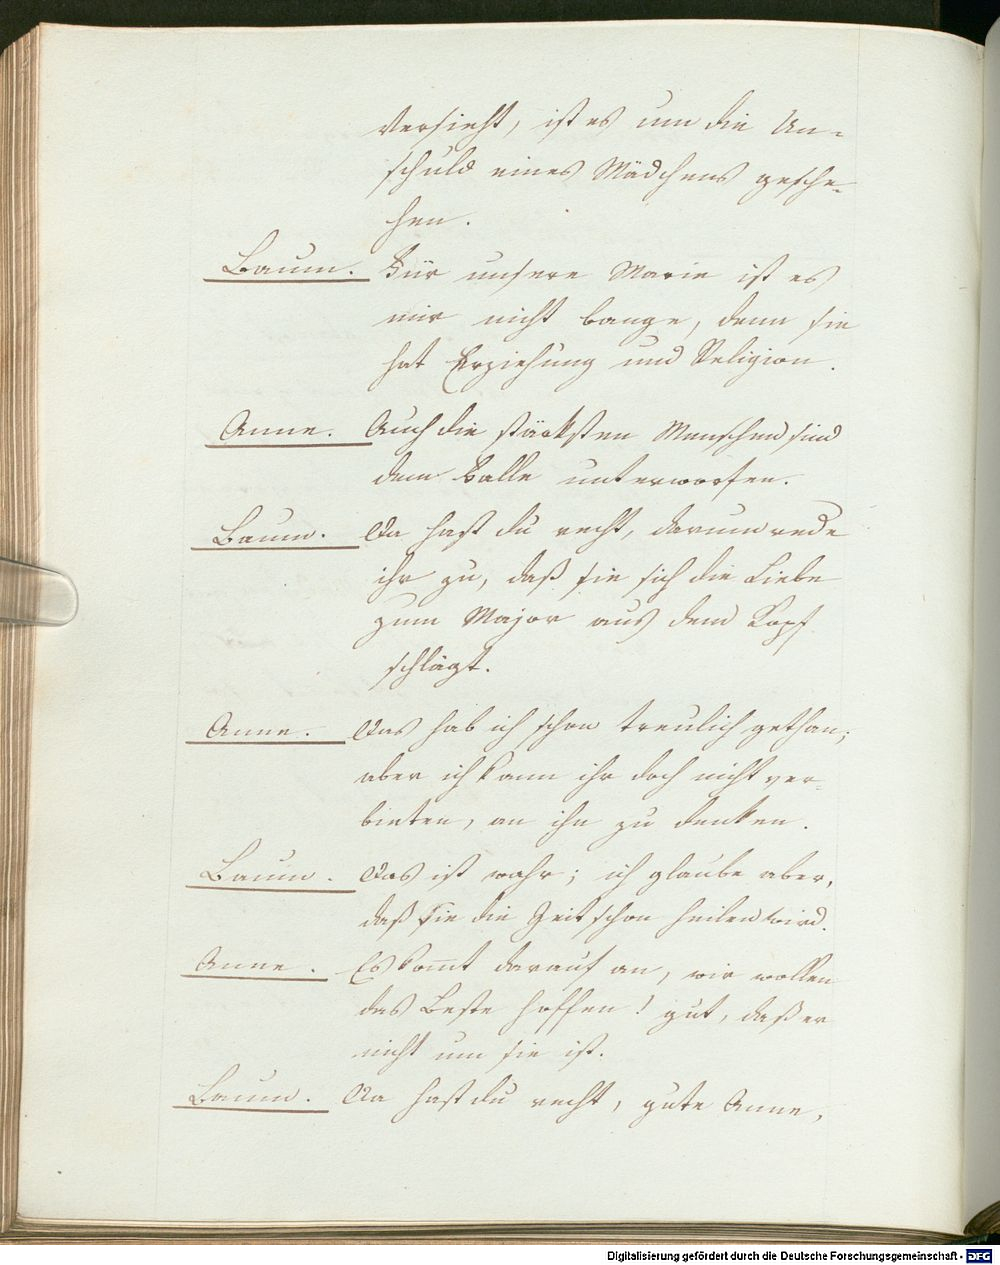 versieht, ist es um die Un-
schuld eines Mädchens gesche-
hen.
Baum. Für unsere Marie ist es
mir nicht bange, denn sie
hat Erziehung und Religion.
Anne. Auch die stärksten Menschen sind
dem Falle unterworfen.
Baum. Da hast du recht, darum rede
ihr zu, daß sie sich die Liebe
zum Major aus dem Kopf
schlägt.
Anne. Das hab ich schon treulich gethan;
aber ich kann ihr doch nicht ver-
bieten, an ihn zu denken.
Baum. Das ist wahr; ich glaube aber,
daß sie die Zeit schon heilen wird.
Anne. Es kom̅t darauf an, wir wollen
das Beste hoffen! gut, daß er
nicht um sie ist.
Baum. Da hast du recht, gute Anne,
Digitalisierung gefördert durch die Deutsche Forschungsgemeinschaft - DFG